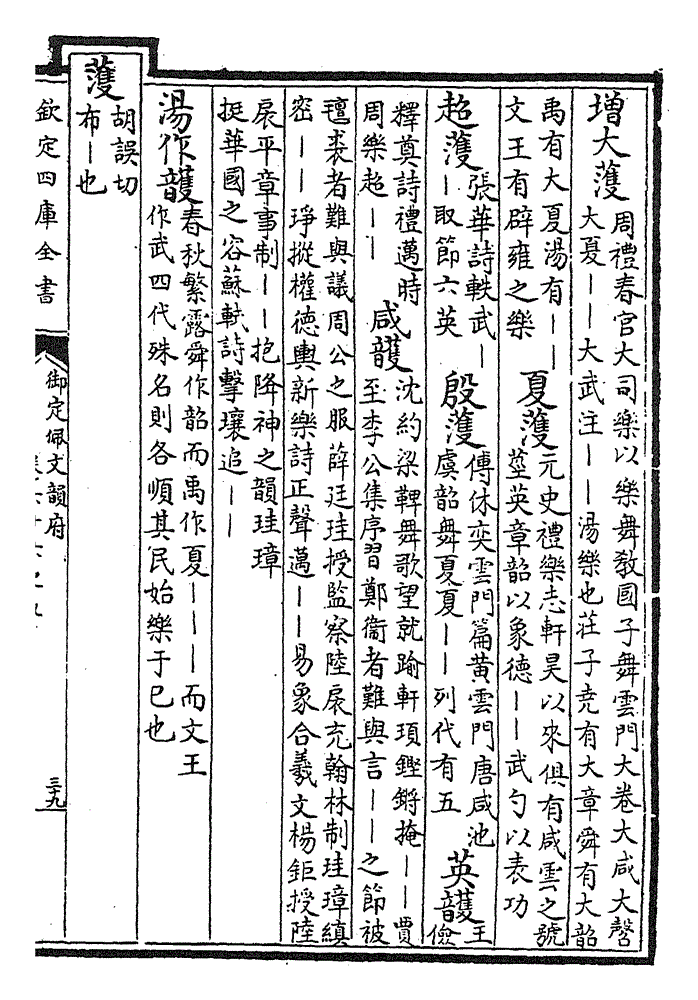 增大濩
周禮春官大司樂以樂舞教國子舞雲門大卷大咸大㲈
大夏——大武注——湯樂也莊子堯有大章舜有大韶
禹有大夏湯有——
文王有辟雍之樂
夏濩
元史禮樂志軒昊以來俱有咸雲之號
莖英章韶以象德——武勺以表功
超濩
張華詩軼武—
—取節六英
殷濩
傅休奕雲門篇黄雲門唐咸池
虞韶舞夏夏——列代有五
英頀
王
儉
釋奠詩禮邁時
周樂超——
咸頀
沈約梁鞞舞歌望就踰軒頊鏗鏘掩——賈
至李公集序習鄭衞者難與言——之節被
氊裘者難與議周公之服薛廷珪授監察陸扆充翰林制珪璋縝
密——琤摐權德輿新樂詩正聲邁——易象合羲文楊鉅授陸
扆平章事制——抱降神之韻珪璋
挺華國之容蘇軾詩擊壤追——
湯作頀
春秋繁露舜作韶而禹作夏———而文王
作武四代殊名則各順其民始樂于已也
濩
胡誤切
布—也
欽定四庫全書
御定佩文韻府
三九